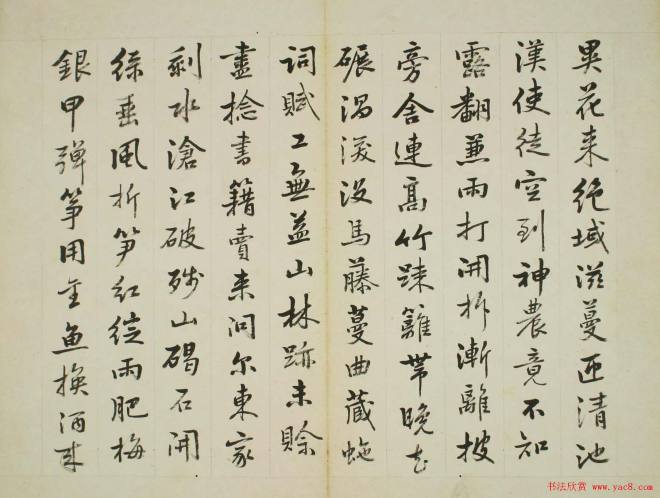 異花来絶域滋蔓匝清池
漢使徒空到神農竟不知
露翻兼雨打開拆漸離披
旁舍連高竹踈籬帶晚花
碾渦深没馬藤蔓曲藏蛇
詞賦工無益山林跡未賒
盡捻書籍賣来問尔東家
剩水滄江破殘山碣石開
緑垂風折笋紅綻雨肥梅
銀甲彈箏用金魚換酒来
书法欣赏 www.yac8.com